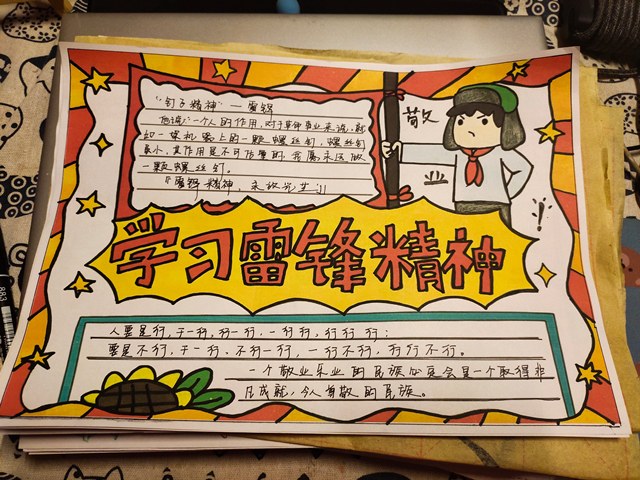 "钉子精神"一雷锋
他说:一个人的作用,对于革命事业来说,就
如一架机器上的一颗螺丝钉,螺丝钉
虽小,其作用是不可估量的,我愿永远做
一颗螺丝钉。
『雷锋精神,永放光芒』
敬
业
!
学习雷锋精神
人要是行,干一行,行一行,一行行,行行行;
要是不行,干一行,不行一行,一行不行,行行不行。
一个敬业乐业的民族必定会是一个取得非
凡成就,令人尊敬的民族。
883